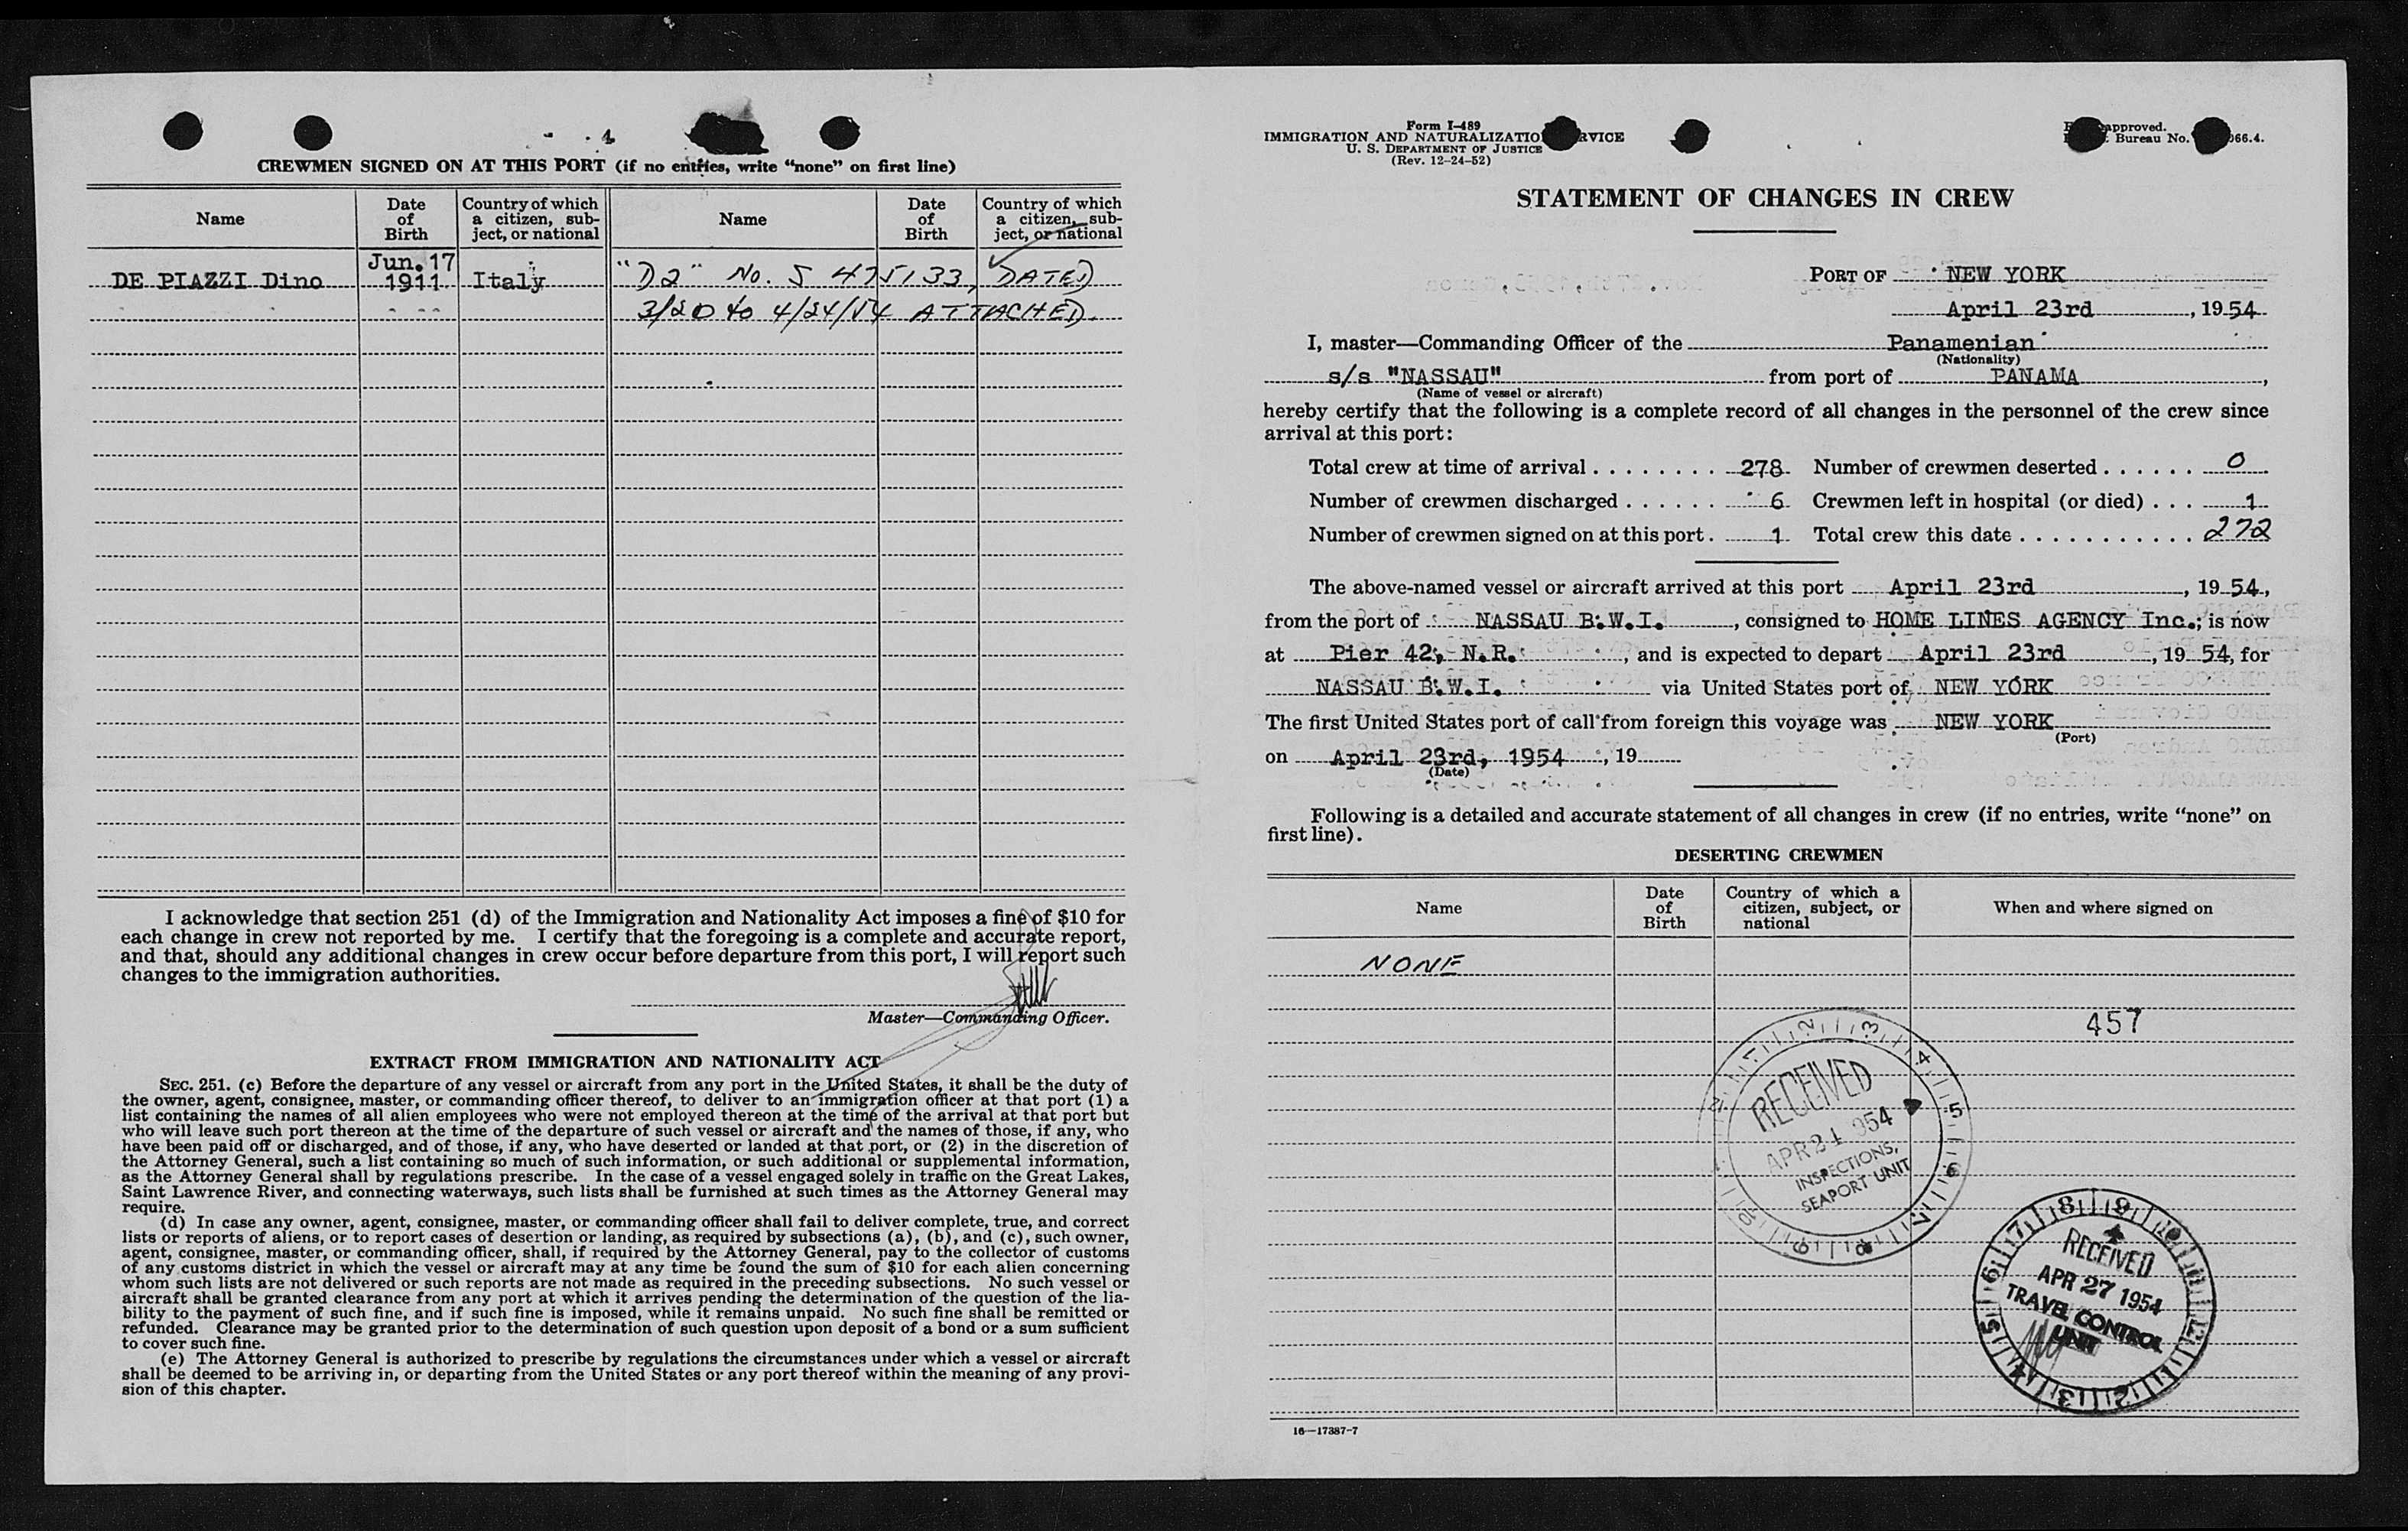 CREWMEN SIGNED ON AT THIS PORT (if no entries, write “none” on first line)
Name
Date of Birth
Country of which a citizen, sub-ject, or national
Name
Date of Birth
Country of which a citizen, sub-ject, or national
DE PIAZZI Dino Jun. 17 1911 Italy "D2" No. 5 475133, DATED
3/20 to 4/24/54 ATTACHED.
I acknowledge that section 251 (d) of the Immigration and Nationality Act imposes a fine of $10 for
each change in crew not reported by me. I certify that the foregoing is a complete and accurate report,
and that, should any additional changes in crew occur before departure from this port, I will report such
changes to the immigration authorities.
Master—Commanding Officer.
EXTRACT FROM IMMIGRATION AND NATIONALITY ACT
SEC. 251. (c) Before the departure of any vessel or aircraft from any port in the United States, it shall be the duty of
the owner, agent, consignee, master, or commanding officer thereof, to deliver to an immigration officer at that port (1) a
list containing the names of all alien employees who were not employed thereon at the time of the arrival at that port but
who will leave such port thereon at the time of the departure of such vessel or aircraft and the names of those, if any, who
have been paid off or discharged, and of those, if any, who have deserted or landed at that port, or (2) in the discretion of
the Attorney General, such a list containing so much of such information, or such additional or supplemental information,
as the Attorney General shall by regulations prescribe. In the case of a vessel engaged solely in traffic on the Great Lakes,
Saint Lawrence River, and connecting waterways, such lists shall be furnished at such times as the Attorney General may
require.
(d) In case any owner, agent, consignee, master, or commanding officer shall fail to deliver complete, true, and correct
lists or reports of aliens, or to report cases of desertion or landing, as required by subsections (a), (b), and (c), such owner,
agent, consignee, master, or commanding officer, shall, if required by the Attorney General, pay to the collector of customs
of any customs district in which the vessel or aircraft may at any time be found the sum of $10 for each alien concerning
whom such lists are not delivered or such reports are not made as required in the preceding subsections. No such vessel or
aircraft shall be granted clearance from any port at which it arrives pending the determination of the question of the lia-
bility to the payment of such fine, and if such fine is imposed, while it remains unpaid. No such fine shall be remitted or
refunded. Clearance may be granted prior to the determination of such question upon deposit of a bond or a sum sufficient
to cover such fine.
(e) The Attorney General is authorized to prescribe by regulations the circumstances under which a vessel or aircraft
shall be deemed to be arriving in, or departing from the United States or any port thereof within the meaning of any provi-
sion of this chapter.
Form I-489
IMMIGRATION AND NATURALIZATIO RVICE
U. S. DEPARTMENT OF JUSTICE
(Rev. 12-24-52)
approved.
Bureau No. 066.4.
STATEMENT OF CHANGES IN CREW
PORT OF NEW YORK
April 23rd, 1954
I, master—Commanding Officer of the Panamenian
(Nationality)
s/s "NASSAU" from port of PANAMA,
(Name of vessel or aircraft)
hereby certify that the following is a complete record of all changes in the personnel of the crew since
arrival at this port:
Total crew at time of arrival 278 Number of crewmen deserted 0
Number of crewmen discharged 6 Crewmen left in hospital (or died) 1
Number of crewmen signed on at this port 1 Total crew this date 272
The above-named vessel or aircraft arrived at this port April 23rd, 1954,
from the port of NASSAU B.W.I., consigned to HOME LINES AGENCY Inc.; is now
at Pier 42, N.R., and is expected to depart April 23rd, 1954, for
NASSAU B.W.I. via United States port of NEW YORK
The first United States port of call from foreign this voyage was NEW YORK
(Port)
on April 23rd, 1954, 19
(Date)
Following is a detailed and accurate statement of all changes in crew (if no entries, write “none” on
first line).
DESERTING CREWMEN
Name
Date of Birth
Country of which a citizen, subject, or national
When and where signed on
NONE
457
RECEIVED
INSPECTIONS,
SEAPORT UNIT
RECEIVED
APR 27 1954
TRAVEL CONTROL
UNIT
16—17387-7